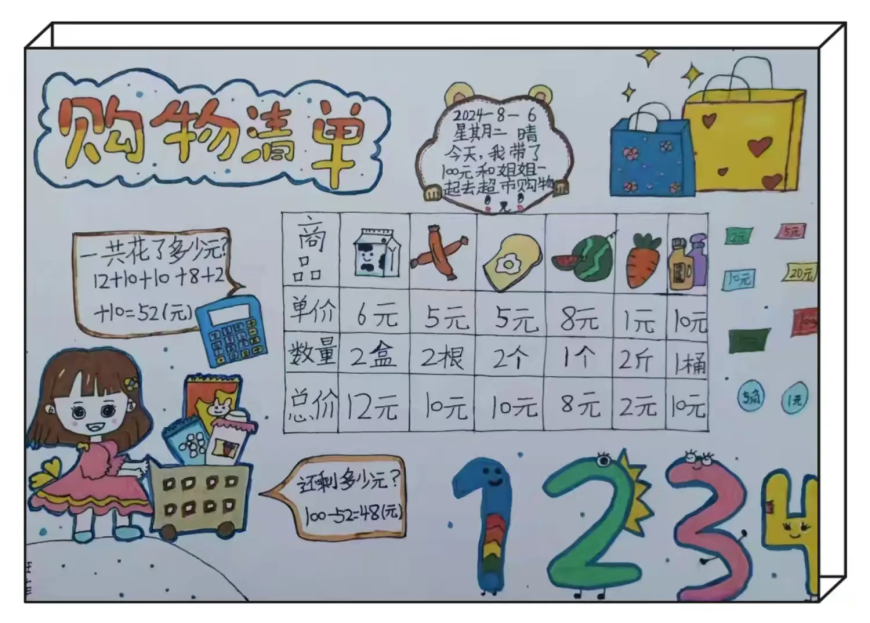 购物清单
2024-8-6
星期二 晴
今天,我带了
100元和姐姐一
起去超市购物
一共花了多少元?
12+10+10+8+2
+10=52(元)
商品
单价 6元 5元 5元 8元 1元 10元
数量 2盒 2根 2个 1个 2斤 1桶
总价 12元 10元 10元 8元 2元 10元
5元
10元
20元
1元
还剩多少元?
100-52=48(元)
1 2 3 4